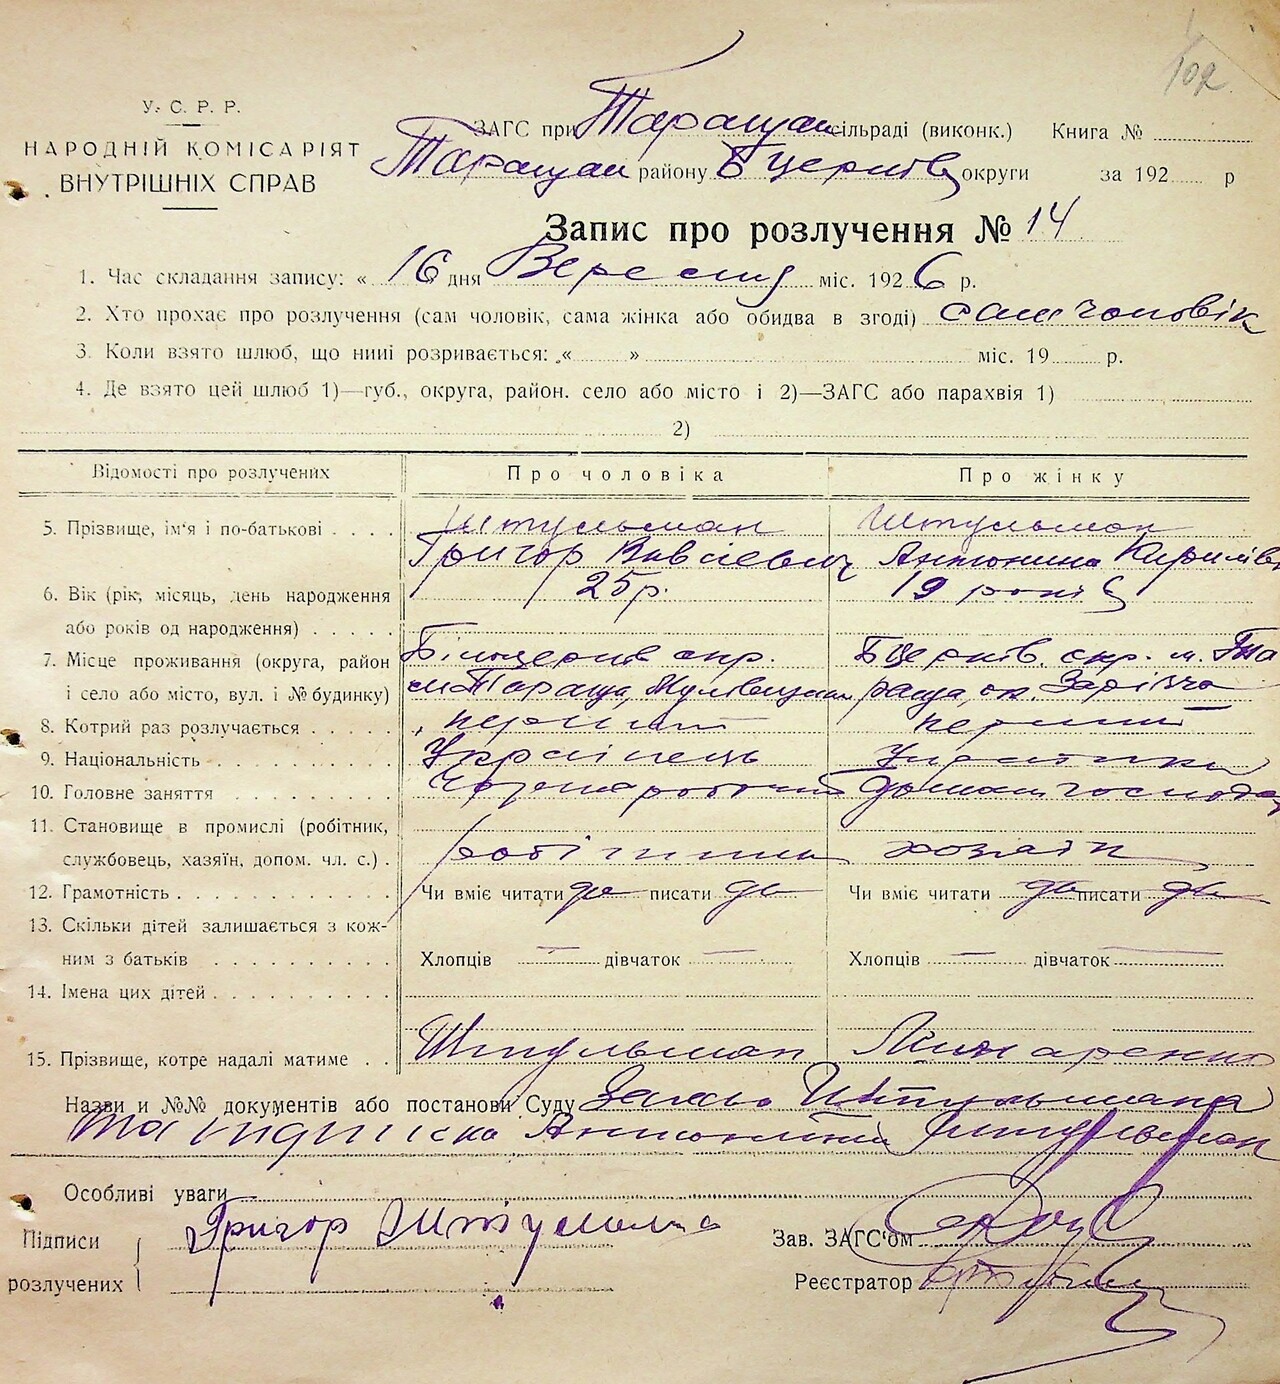 102
У. С. Р. Р.
НАРОДНІЙ КОМІСАРІЯТ
ВНУТРІШНІХ СПРАВ
ЗАГС при Таращан сільраді (виконк.) Книга №
Таращан району БЦерків округи за 192 р
Запис про розлучення № 14
1. Час складання запису: « 16 дня Вересня міс. 1926 р.
2. Хто прохає про розлучення (сам чоловік, сама жінка або обидва в згоді) сам чоловік
3. Коли взято шлюб, що нині розривається: „ « » міс. 19 р.
4. Де взято цей шлюб 1)—губ., округа, район. село або місто і 2)—ЗАГС або парахвія 1)
2)
Відомості про розлучених Про чоловіка Про жінку
5. Прізвище, ім‘я і по-батькові Штульман Штульман
Григор Антонина Кирилівн
6. Вік (рік, місяць, день народження 25 р. 19 років
або років од народження)
7. Місце проживання (округа, район Білоцерків окр. БЦерків. окр. м. Та
і село або місто, вул. і № будинку) м Тараща, раща, ок. Зарічча
8. Котрий раз розлучається перший перший
9. Національність Українець Українка
10. Головне заняття Чорноробочий Домашн господар
11. Становище в промислі (робітник,
службовець, хазяїн, допом. чл. с.) робітник хозяїн
12. Грамотність Чи вміє читати да писати да Чи вміє читати да писати да
13. Скільки дітей залишається з кож-
ним з батьків Хлопців — дівчаток — Хлопців — дівчаток —
14. Імена цих дітей
15. Прізвище, котре надалі матиме Штульман
Назви и №№ документів або постанови Суду Заява Штульмана
та підписка Антоніни Штульман
Особливі уваги
Підписи Григор Зав. ЗАГС‘ом
розлучених Реєстратор